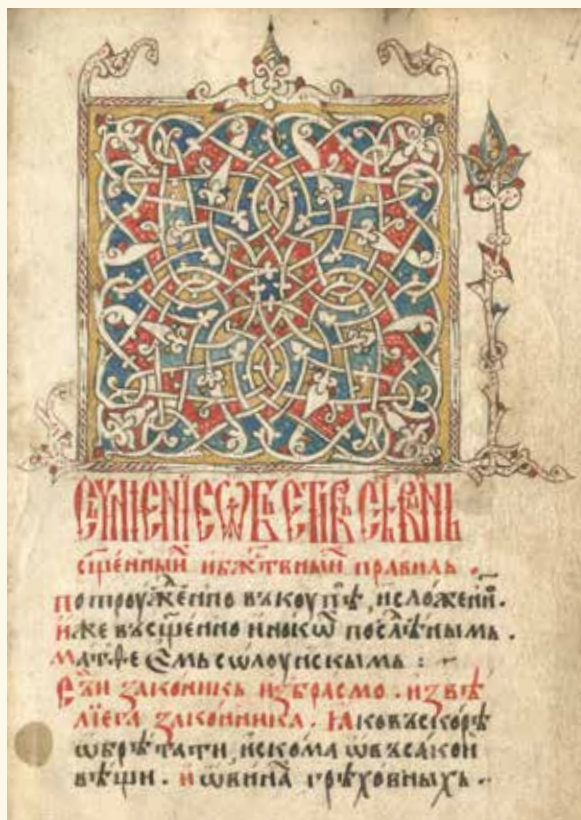 сщ҃енныⷨ и бжⷭ҇твныⷨ правиль .
потроуⷤенно въкоупѣ , и сложеннⷨ .
иже въ сщ҃енно инокѡⷯ послѣнымь .
матѳеѡмь сѡлоунскымь : ~
Сꙿи законикь избрасмо . из вѣ
лїега законника . ꙗко въскорѣ
ѡбрѣтати , искома ѡ въсакои
вѣщи . и ѡ вина грѣховныхь ..